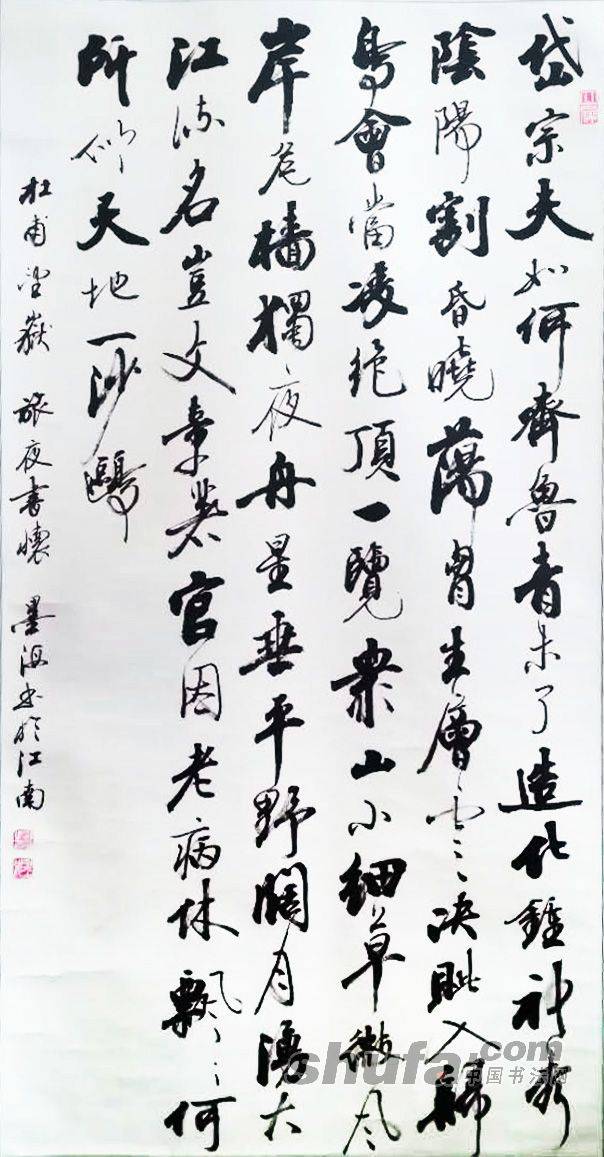 岱宗夫如何齊魯青未了造化鍾神秀
陰陽割昏曉蕩胷生層雲決眦入歸
鳥會當凌絕頂一覽衆山小細草微風
岸危檣獨夜舟星垂平野闊月湧大
江流名豈文章著官因老病休飄〻何
所似天地一沙鷗
杜甫望嶽 旅夜書懷 墨海书於江南
shufa.com
中国书法网